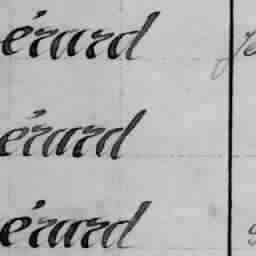 érard
érard
érard